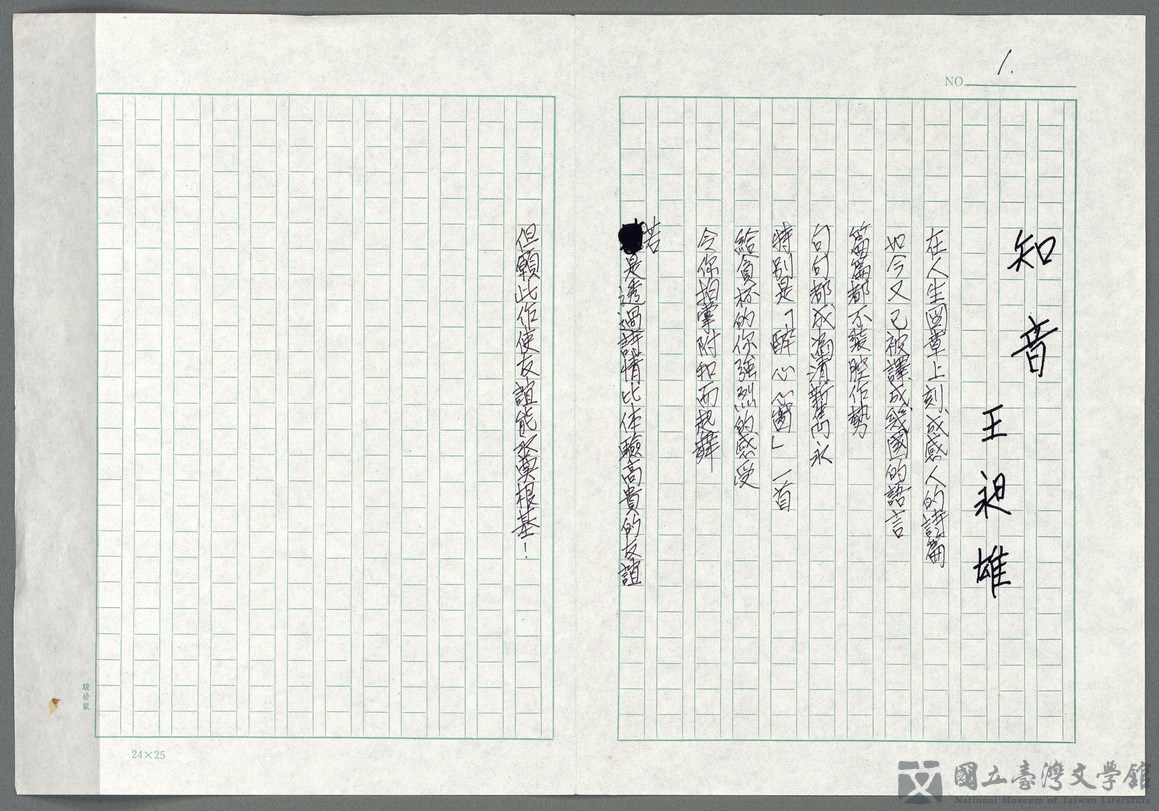 NO. 1.
知音
王昶雄
在人生圖章上刻成感人的詩篇
如今又已被譯成幾國的語言
篇篇都不裝腔作勢
句句都成為清新雋永
特別是「醉心心園」一首
給貪杯的你強烈的感受
令你拍掌附和而起舞
若是透過詩情比体驗高貴的友誼
但願此作使友誼能永奠根基！
24×25
國立臺灣文學館
National Museum of Taiwan Literature